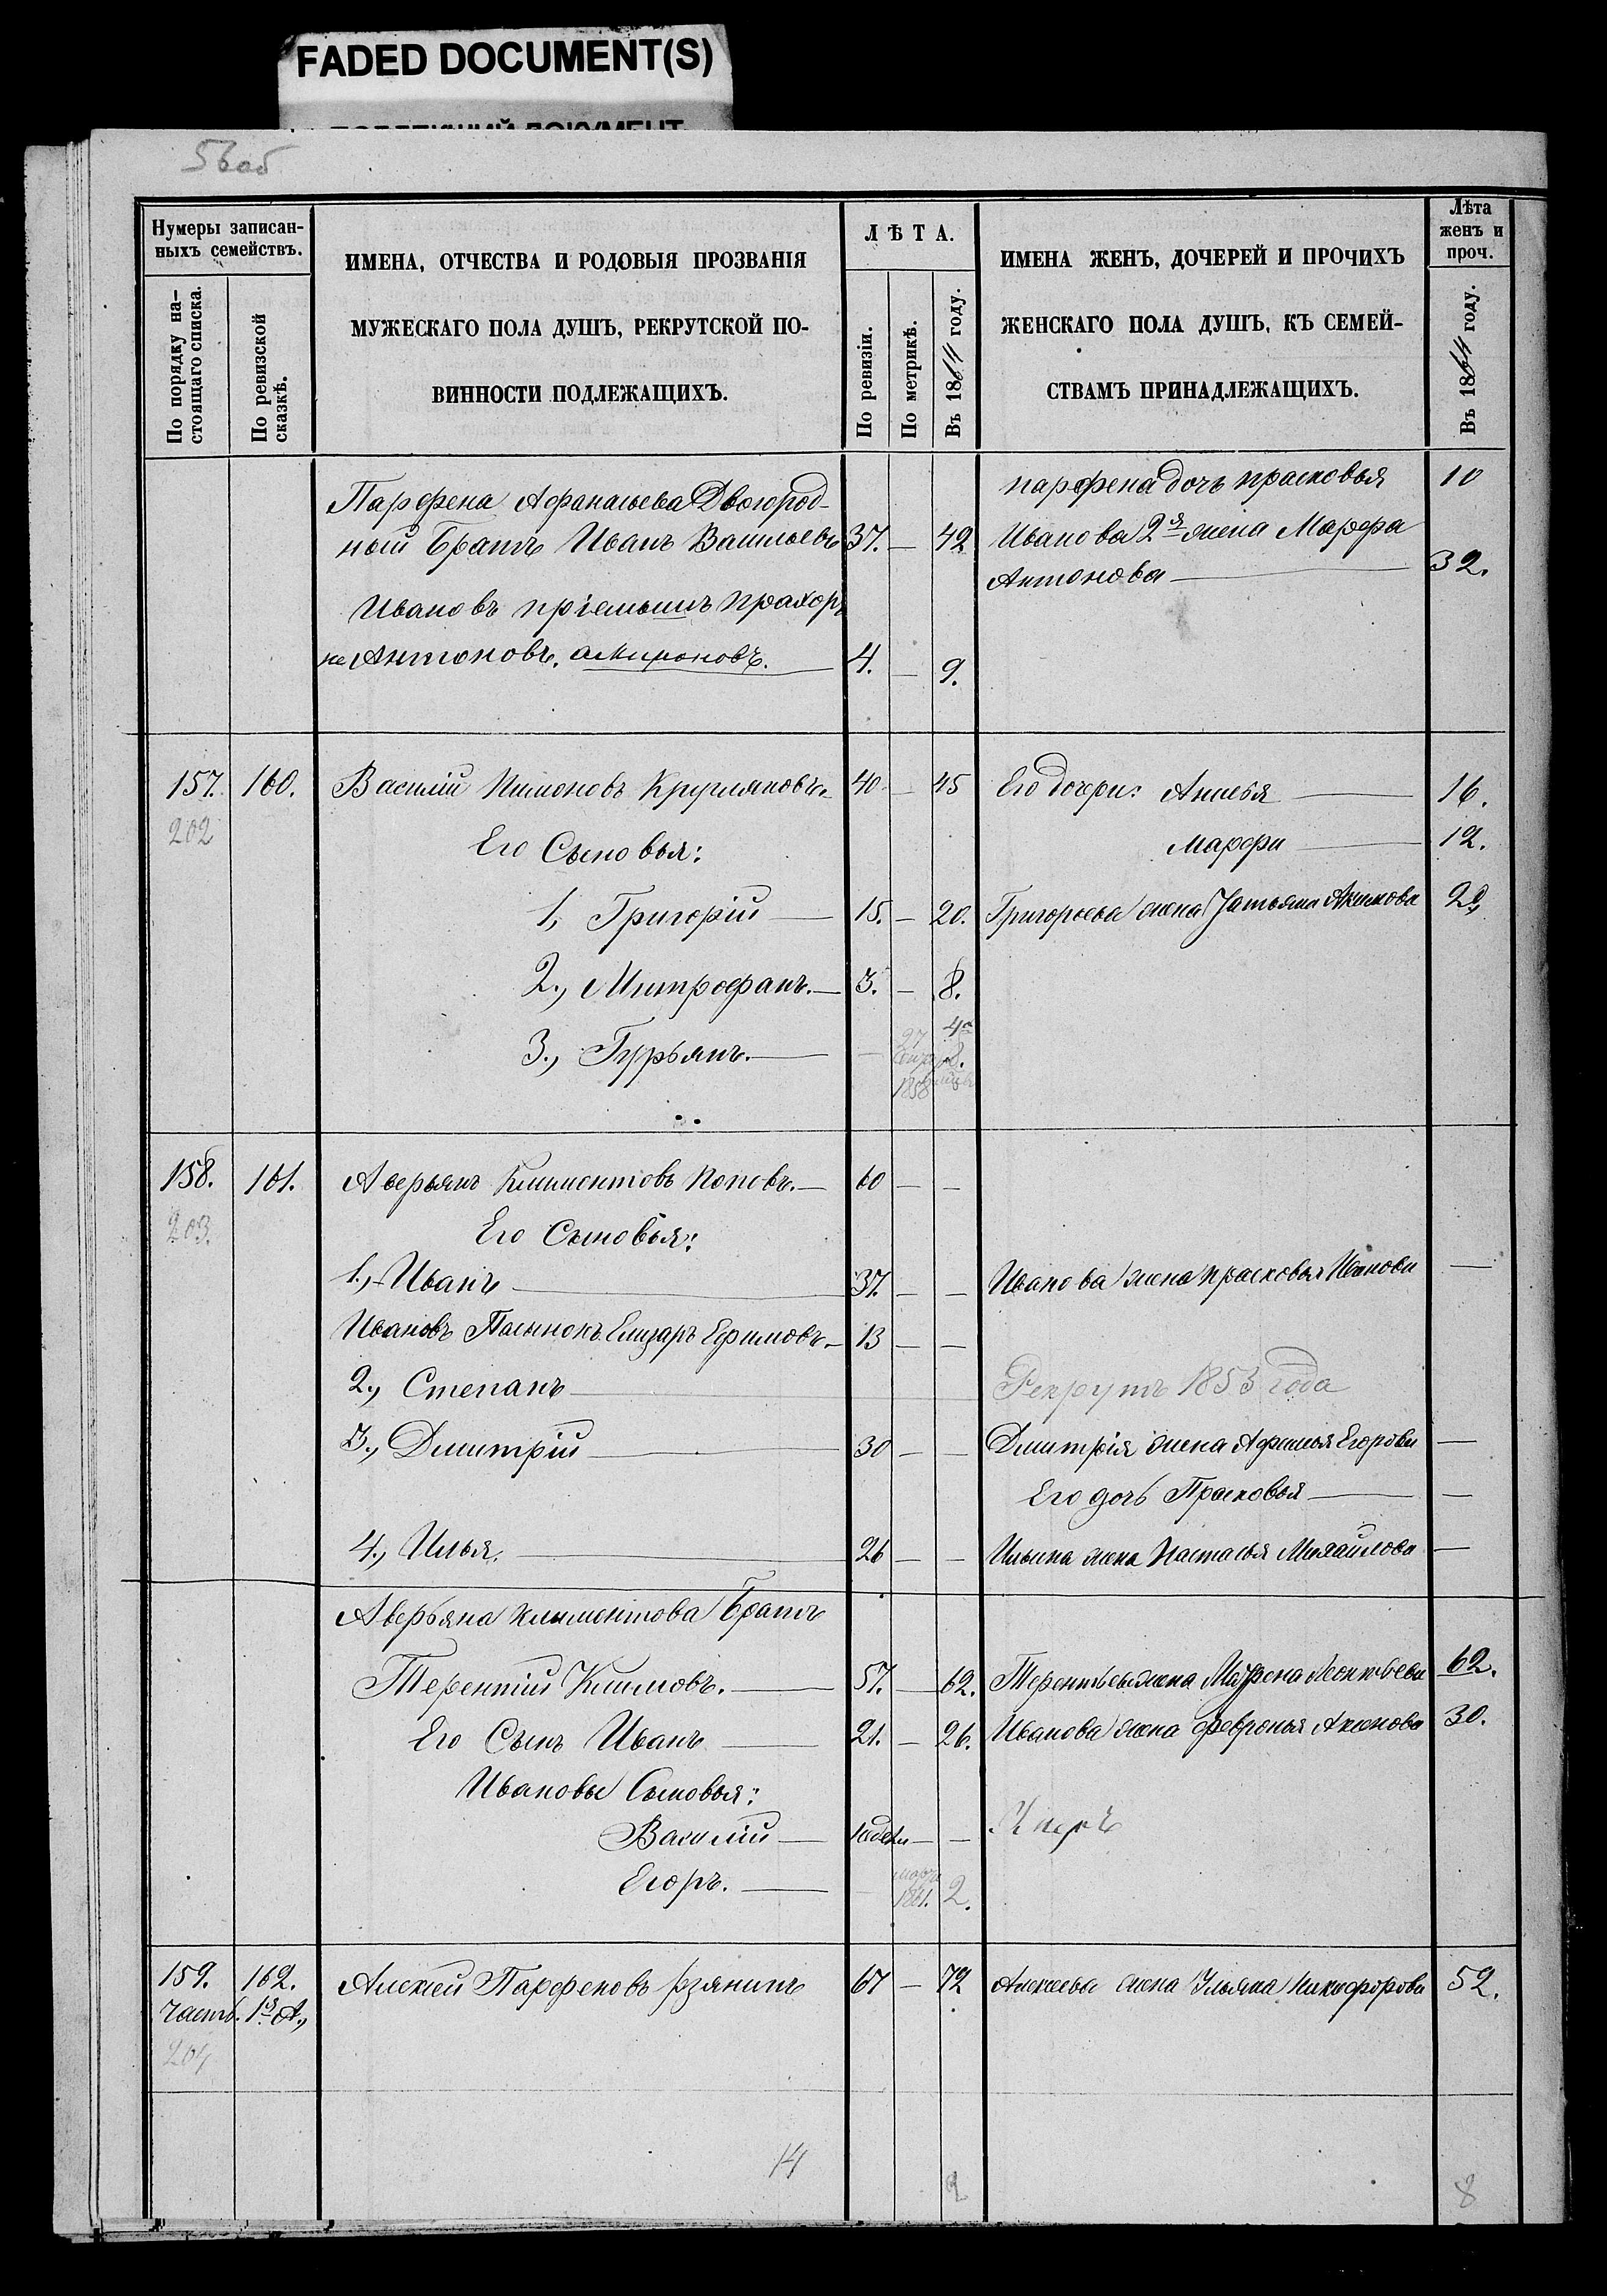 FADED DOCUMENT(S)
56 об
Нумеры записан-
ныхъ семействъ.
По порядку на-
стоящаго списка.
По ревизской
сказкѣ.
ИМЕНА, ОТЧЕСТВА И РОДОВЫЯ ПРОЗВАНІЯ
МУЖЕСКАГО ПОЛА ДУШЪ, РЕКРУТСКОЙ ПО-
ВИННОСТИ ПОДЛЕЖАЩИХЪ.
ЛѢТА.
По ревизіи.
По метрикѣ.
Въ 1864 году.
ИМЕНА ЖЕНЪ, ДОЧЕРЕЙ И ПРОЧИХЪ
ЖЕНСКАГО ПОЛА ДУШЪ, КЪ СЕМЕЙ-
СТВАМЪ ПРИНАДЛЕЖАЩИХЪ.
Лѣта
женъ и
проч.
Въ 1864 году.
Парфена Афанасьева Двоюрод-
ный Братъ Иванъ Васильевъ 37. — 42
парфена дочь прасковья 10
Иванова 2я жена Марфа
Антонова — 32.
Ивановъ пріемышъ прахоръ
не Антоновъ, а Мироновъ. 4. — 9.
157. 160. Василій Пимоновъ Кругляковъ 40 — 45 Его дочери: Анисья — 16.
202
Его Сыновья: Марфа — 12.
1, Григорій — 15. — 20. Григорьева жена Татьяна Акимова 20
2., Митрофанъ. — 3. — 8.
3., Гурьянъ. — 27 1858 4
158. 161. Аверьянъ Климентовъ Поповъ. — 60 — —
203.
Его Сыновья:
1., Иванъ — 37. — — Иванова жена прасковья Иванова —
Ивановъ Пасынокъ Елизаръ Ефимовъ. — 13 — —
2., Степанъ — Рекрутъ 1853 года
3., Дмитрій — 30 — — Дмитрія жена Афимья Егорова —
Его дочь Прасковья — —
4., Илья. — 26 — — Ильина жена Настасья Михайлова —
Аверьяна Климентова Братъ
Терентій Климовъ. — 57. — 62. Терентьева жена Матрена Леонтьева 62.
Его Сынъ Иванъ — 21. — 26. Иванова жена Февронья 30.
Ивановы Сыновья:
Василій — — — Умеръ
Егоръ. — 1861. 2.
159. 162. Алексей Парфеновъ Рзянинъ 67 — 72 Алексеева жена Ульяна Никифорова 52.
часть. 1я А.,
204
14
2
8